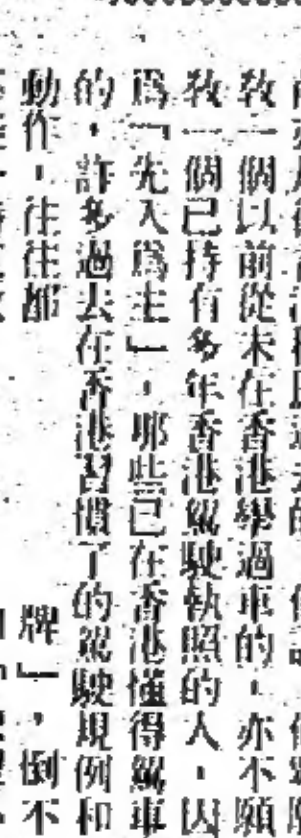 教一個以前從未在香港學過車的，亦不願
教一個已持有多年香港駕駛執照的人，因
爲「先入爲主」，那些已在香港懂得駕車
的，許多過去在香港習慣了的駕駛規例和
動作，往往都
牌」，倒不